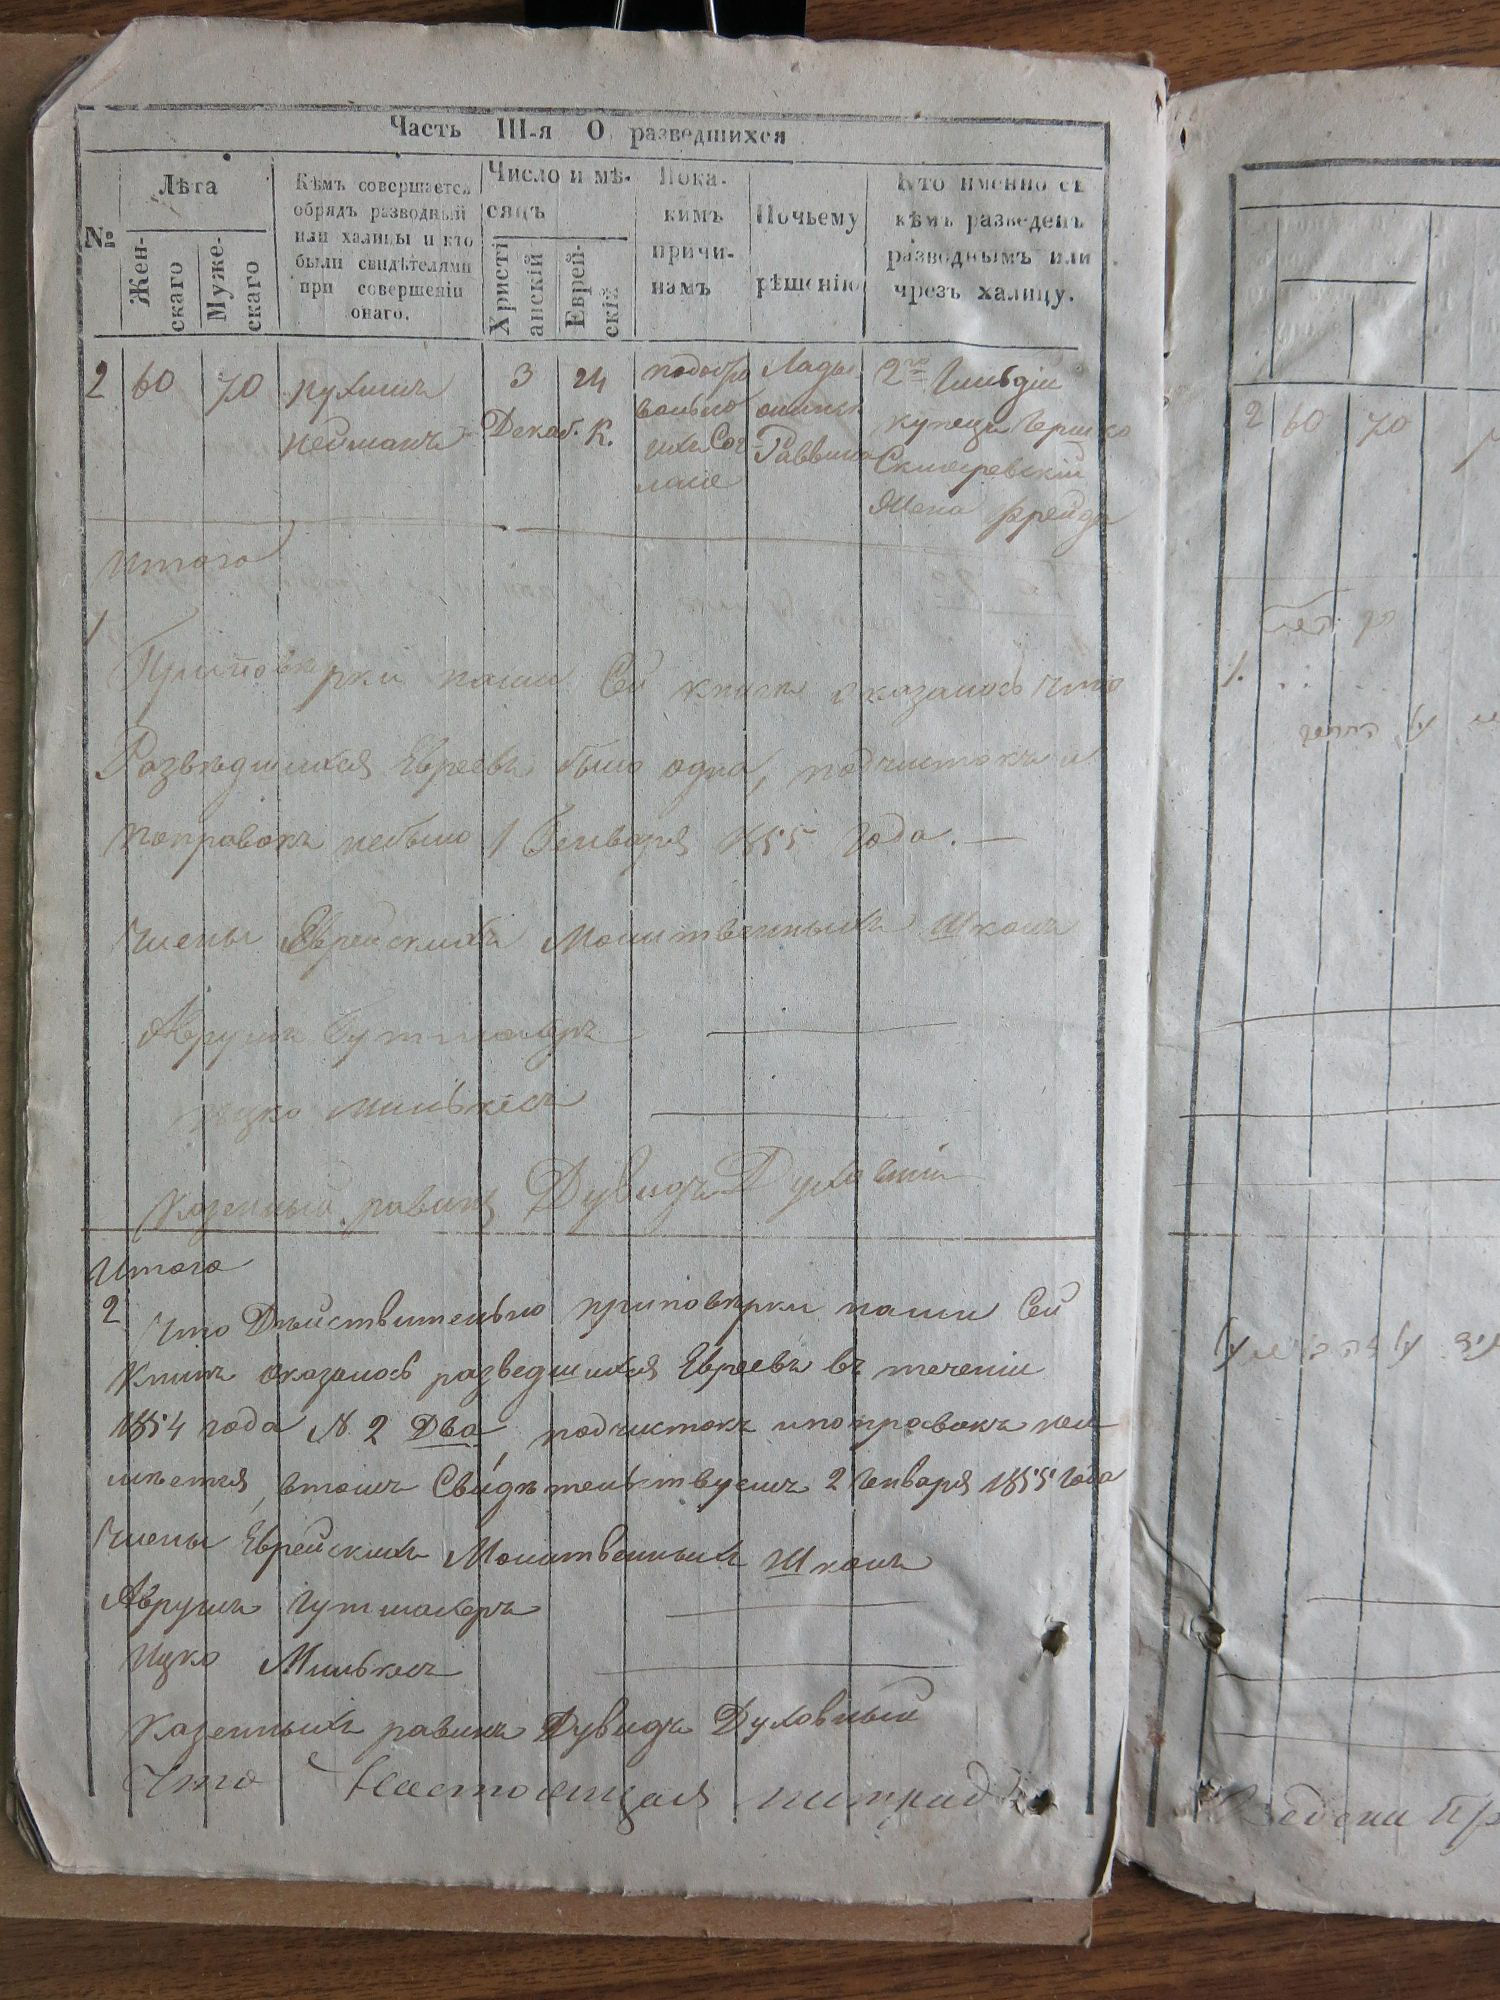 Часть III-я О разведшихся
№
Лѣта
Жен-
скаго
Муже-
скаго
Кѣмъ совершается
обрядъ разводный
или халицы и кто
были свидѣтелями
при совершеніи
онаго.
Число и мѣ-
сяцъ
Христі
анскій
Еврей-
скій
Пока-
кимъ
причи-
намъ
Почьему
рѣшенію
Кто именно съ
кѣмъ разведенъ
разводнымъ или
чрезъ халицу.
2
60
70
Нейманъ
3
Декаб.
24
К.
вольно
ихъ Сог
ласіе
Раввина
2го Гильдіи
купецъ Гершко
Сквиревскій
Жена Фрейда
Итого
1
Приповѣрки нами Сей книги оказалось что
Развѣдшихся Евреевъ было одна, подчистокъ и
поправокъ небыло 1 Генваря 1855 года. —
Члены Еврейскихъ Молитвенныхъ Школъ
Аврумъ Гутмахеръ
Ицко Милькесъ
Казенный равинъ Дувидъ Духовный
Итого
2
Что Дѣйствительно приповѣрки нами Сей
Книги оказалось разведшихся Евреевъ въ теченіи
1854 года N 2 Два, подчистокъ ипоправокъ неи
имѣется, втомъ Свидѣтельствуемъ 2 Генваря 1855 Года
Члены Еврейскихъ Молитвенныхъ Школъ
Аврумъ Гутмахеръ
Ицко Милькесъ
Казенныхъ равинъ Дувидъ Духовный
Что Настоящая
2
60
70
1.